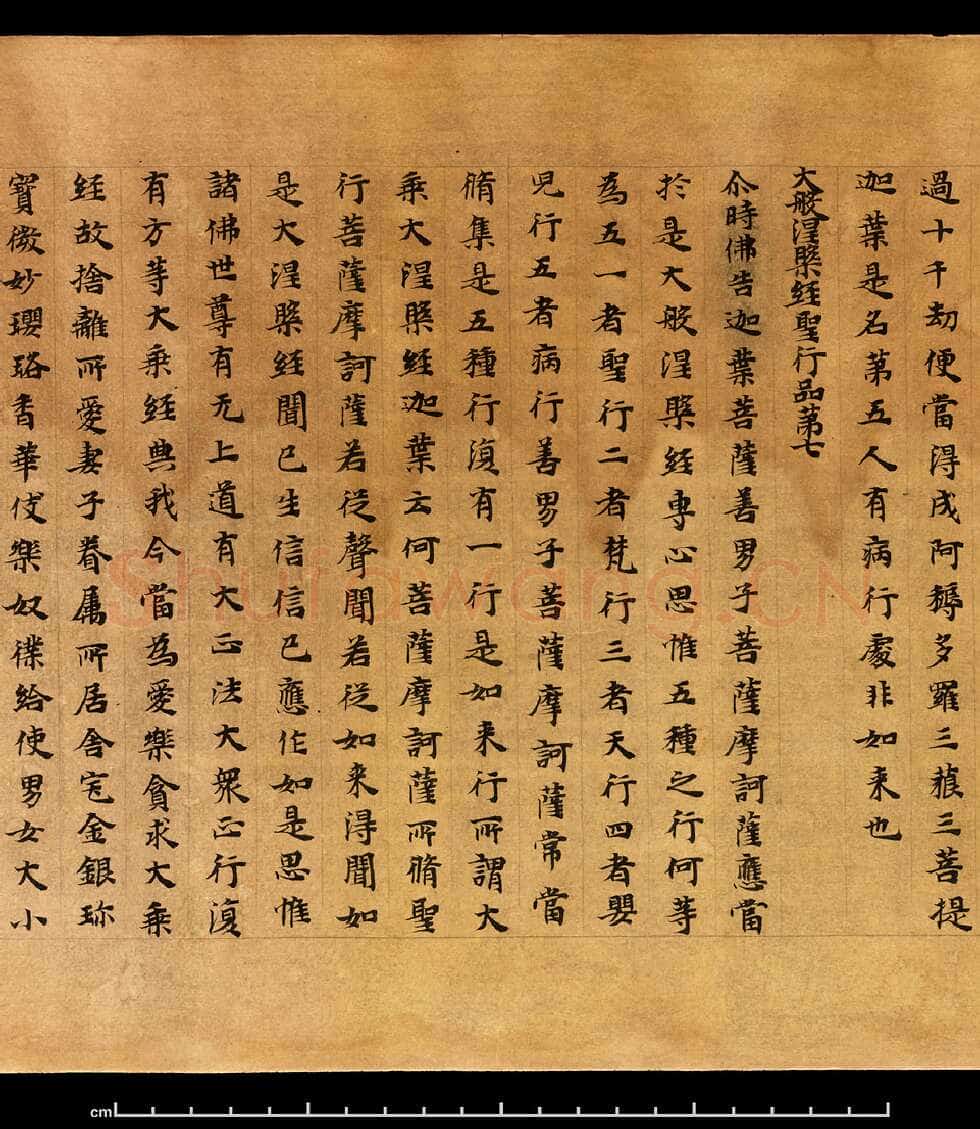 過十千劫便當得成阿耨多羅三藐三菩提
迦葉是名第五人有病行處非如来也
大般涅槃經聖行品第七
尒時佛告迦葉菩薩善男子菩薩摩訶薩應當
於是大般涅槃經專心思惟五種之行何等
為五一者聖行二者梵行三者天行四者嬰
児行五者病行善男子菩薩摩訶薩常當
脩集是五種行復有一行是如来行所謂大
乗大涅槃經迦葉云何菩薩摩訶薩所脩聖
行菩薩摩訶薩若従聲聞若従如来得聞如
是大涅槃經聞已生信信已應作如是思惟
諸佛世尊有无上道有大正法大衆正行復
有方等大乗經典我今當為愛樂貪求大乗
經故捨離所愛妻子眷属所居舎宅金銀珎
寶微妙瓔珞香華伎樂奴僕給使男女大小
Shufawang.CN
cm